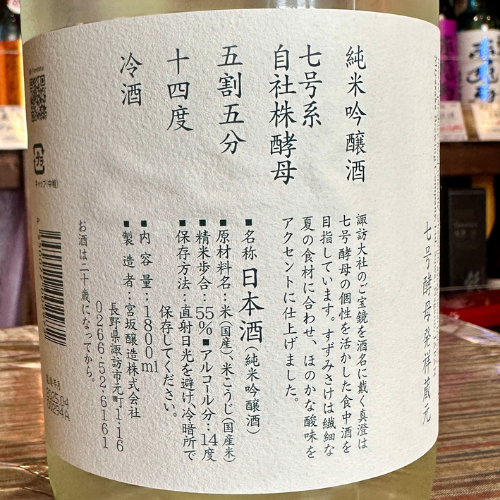 純米吟醸酒
七号系
自社株酵母
五割五分
十四度
冷酒
七号酵母発祥蔵元
諏訪大社のご宝鏡を酒名に戴く真澄は
七号酵母の個性を活かした食中酒を
目指しています。すずみさけは繊細な
夏の食材に合わせ、ほのかな酸味を
アクセントに仕上げました。
■名称 日本酒(純米吟醸酒)
■原材料名:米(国産)、米こうじ(国産米)
■精米歩合:55% ■アルコール分:14度
■保存方法:直射日光を避け、冷暗所で
保存してください。
■内容量:1800ml
■製造者:宮坂醸造株式会社
長野県諏訪市元町1-16
0266-52-6161
お酒は二十歳になってから。